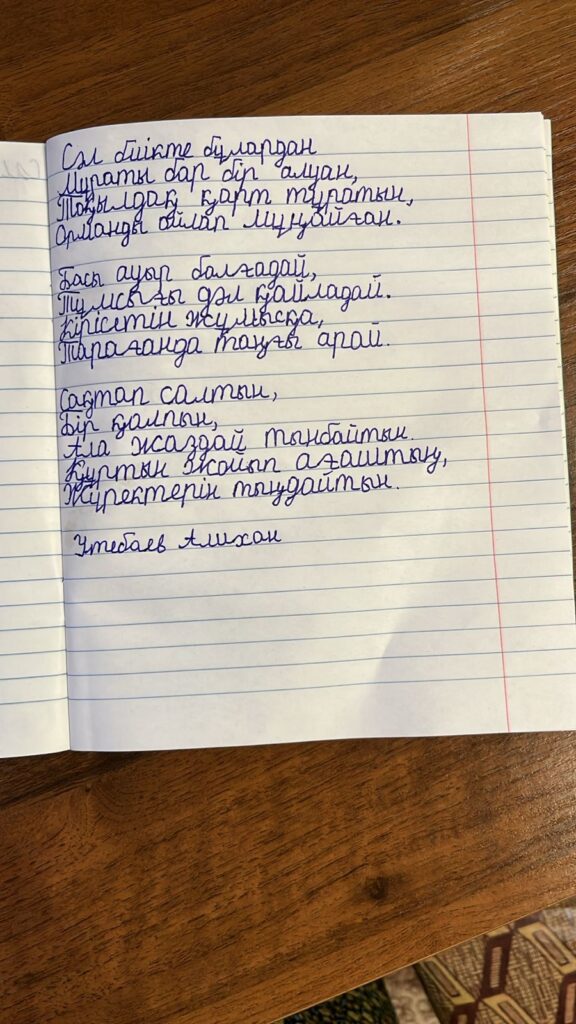 Сәл биікте бұлардан
Мұраты бар бір алуан,
Тоқылдақ қарт тұратын,
Орманды ойлап мұңайған.
Басы ауыр балғадай,
Тұмсығы дәл қайладай.
Кірісетін жұмысқа,
Тарағанда таңғы арай.
Сақтап салтын,
Бір қалпын,
Ала жаздай тынбайтын.
Құртын жойып ағаштың,
Жүректерін тыңдайтын.
Утебаев Алихан